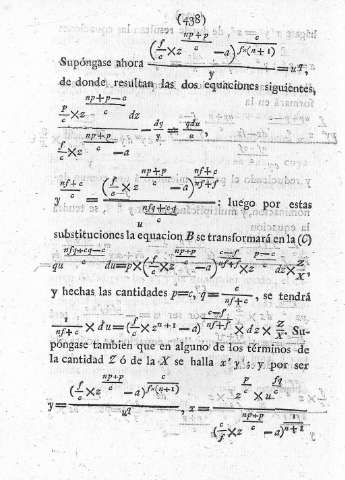 (438)
Supóngase ahora \frac{(\frac{f}{c} × z^{\frac{np+p}{c}} - a)^{\frac{c}{f×(n+1)}}}{y} = u^q,
de donde resultan las dos equaciones siguientes,
\frac{\frac{p}{c} × z^{\frac{np+p-c}{c}} dz}{\frac{f}{c} × z^{\frac{np+p}{c}} - a} - \frac{dy}{y} = \frac{qdu}{u},
y^{\frac{nf+c}{c}} = \frac{(\frac{f}{c} × z^{\frac{np+p}{c}} - a)^{\frac{nf+c}{nf+f}}}{u^{\frac{nfq+cq}{c}}}: luego por estas
substituciones la equacion B se transformará en la (C)
qu^{\frac{nfq+cq-c}{c}} du = p × (\frac{f}{c} × z^{\frac{np+p}{c}} - a)^{\frac{c-f}{nf+f}} × z^{\frac{p-c}{c}} dz × \frac{Z}{X},
y hechas las cantidades p=c, q = \frac{c}{nf+c}, se tendrá
\frac{1}{nf+c} × du = (\frac{f}{c} × z^{n+1} - a)^{\frac{c-f}{nf+f}} × dz × \frac{Z}{X}. Su-
póngase tambien que en alguno de los términos de
la cantidad Z ó de la X se halla x^r y^s; y por ser
y = \frac{(\frac{f}{c} × z^{\frac{np+p}{c}} - a)^{\frac{c}{f×(n+1)}}}{u^q}, x = \frac{z^{\frac{p}{c}} × u^{\frac{fq}{c}}}{(\frac{f}{c} × z^{\frac{np+p}{c}} - a)^{\frac{1}{n+1}}}